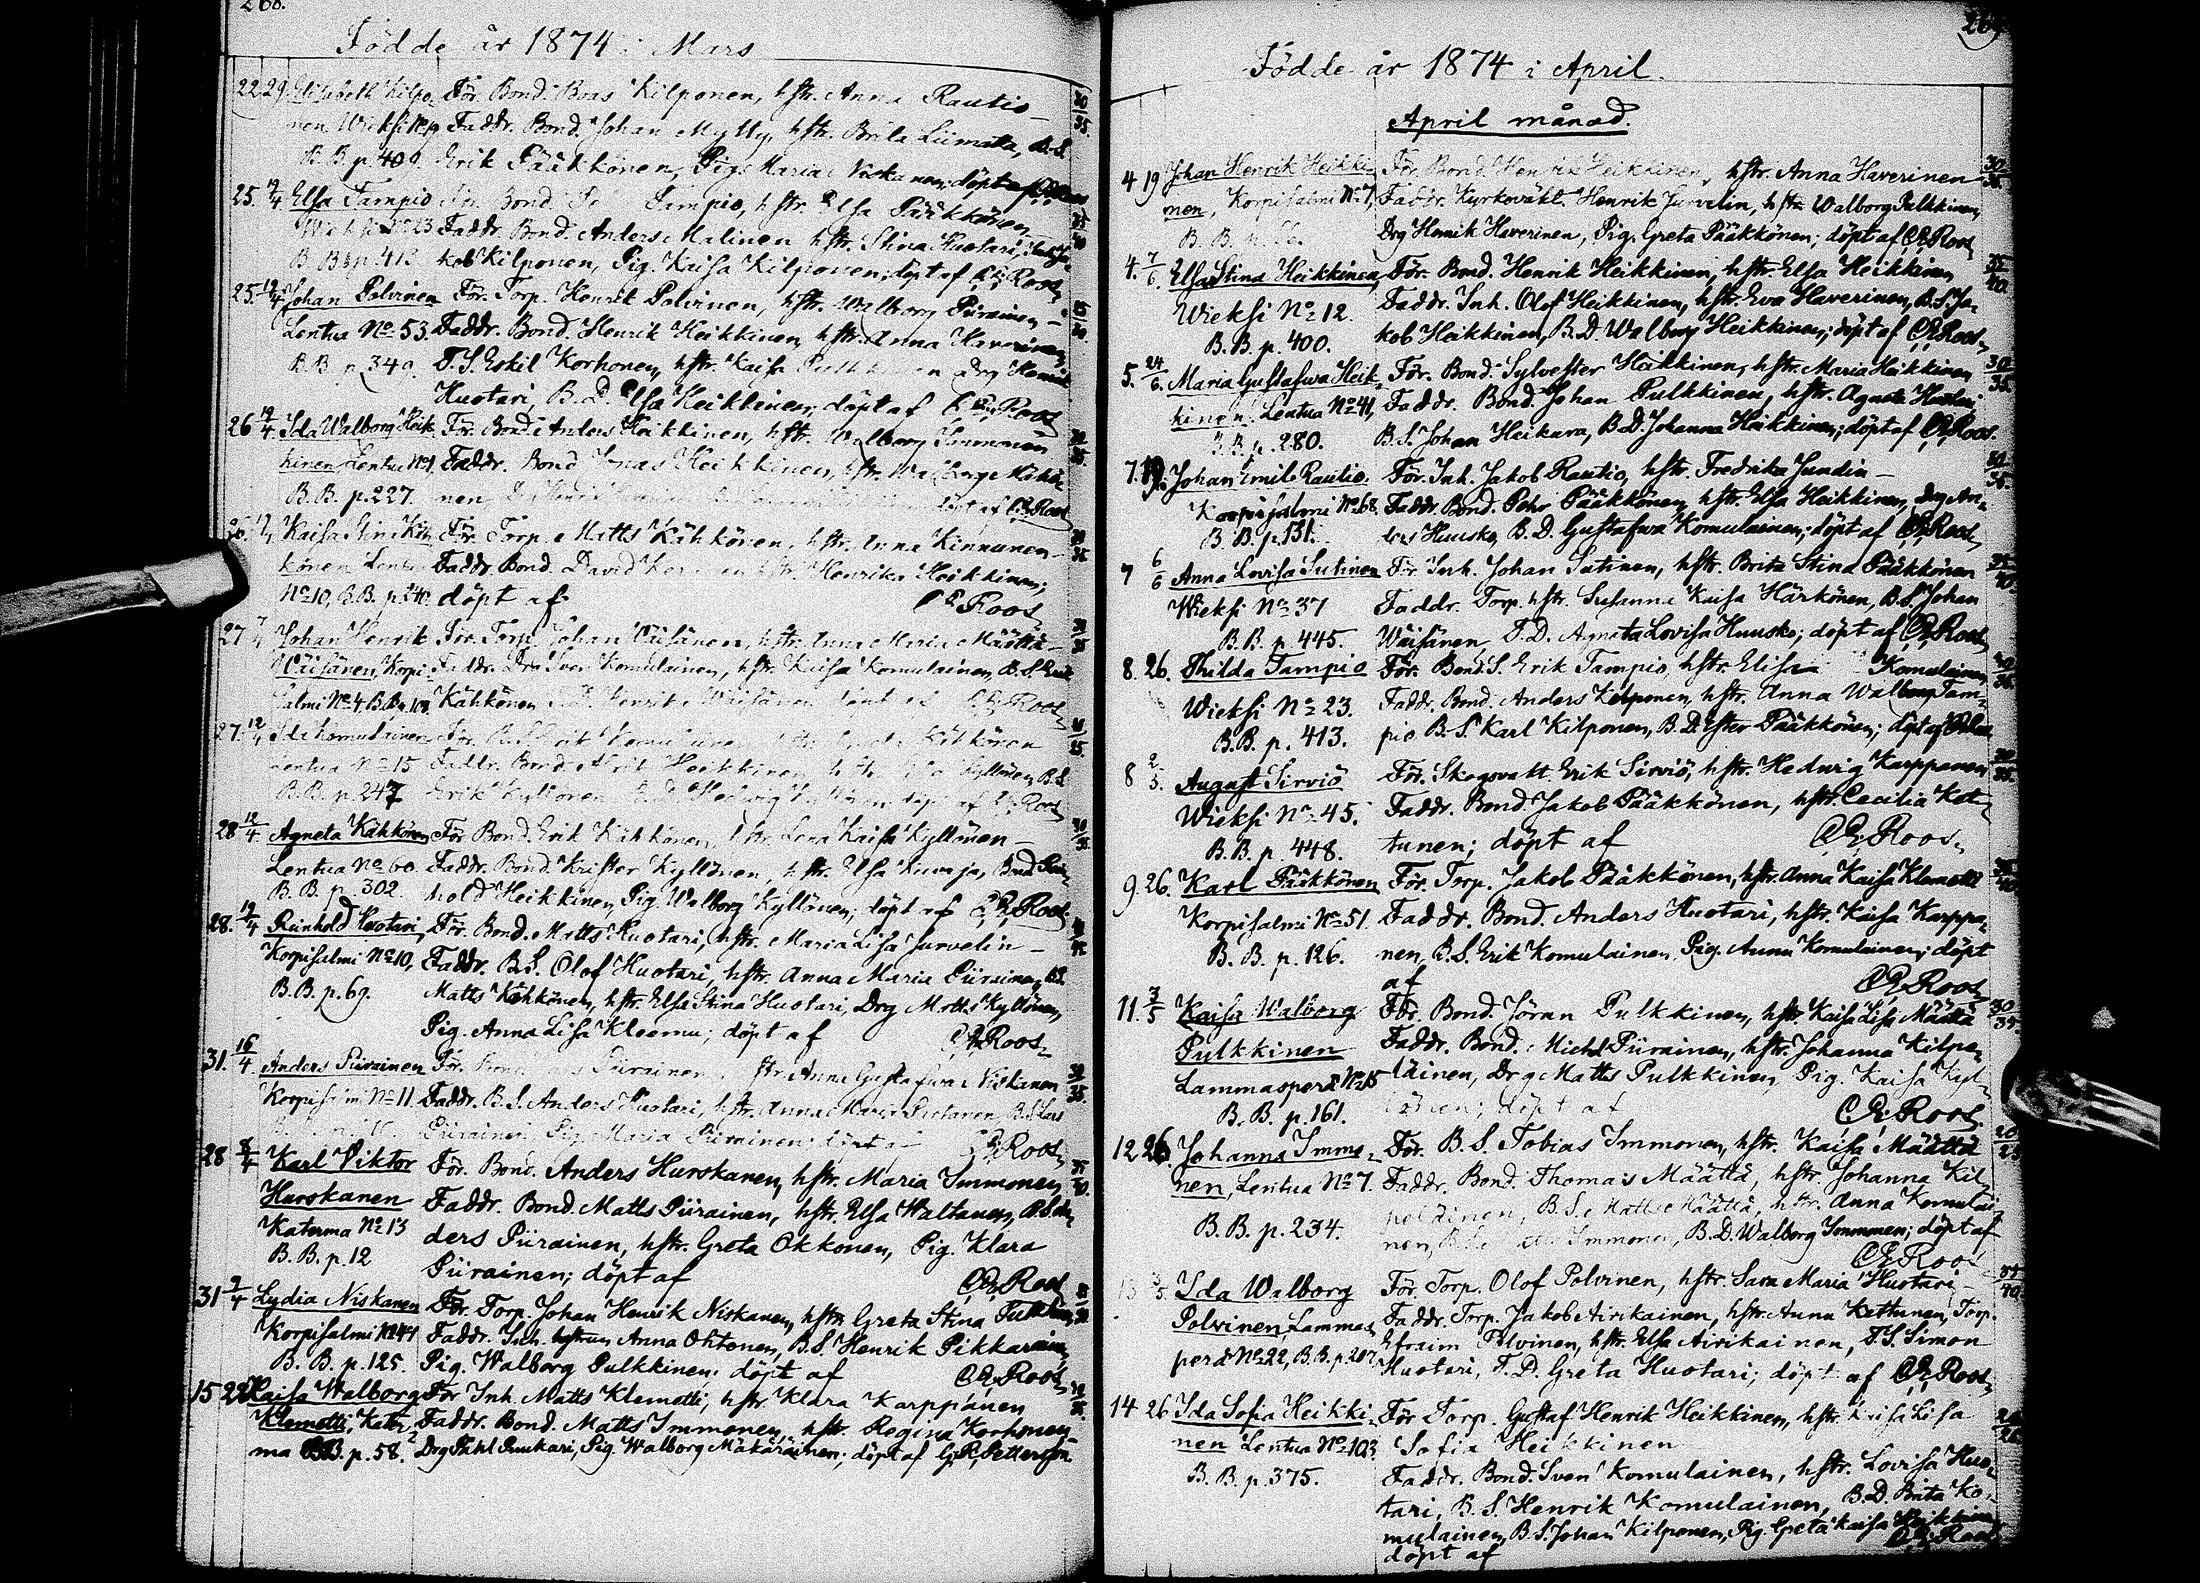 268.
Födde år 1874 i Mars
22. 29. Elisabeth Kilpo- För. Bond. Boas Kilponen, hstr. Anna Rautio 30/35.
nen Wieksi Faddr. Bond. Johan Mylly, hstr. Brita Liimatta, B.S.
B.B. p. 409. Erik Pääkkönen, Pig. Maria döpt af
25. 12/4 Elsa Tampio För. Bond. Tampio, hstr. Elsa Pääkkönen
No 23 Faddr. Bond. Anders Malinen hstr. Stina Huotari,
B.B. p. 413 kob Kilponen, Pig. Kaisa Kilponen; döpt af CE Roos
25. 12/4 Johan Polvinen För. Torp. Henrik Polvinen, hstr. Walborg Piirainen
Lentua No 53. Faddr. Bond. Henrik Heikkinen, hstr. Anna Haverinen,
B.B. p. 340. T.S. Eskil Korhonen, hstr. Kaisa Drg Henrik
Huotari, B.D. Elsa Heikkinen; döpt af CE Roos
26 12/4 Ida Walborg Heik- För. Bond. Anders Heikkinen, hstr. Walborg Immonen
kinen Lentua No 1. Faddr. Bond Jonas Heikkinen, hstr. Walborg
B.B. p. 227. nen döpt af CE Roos
26. Kaisa Stina Käh- För. Torp. Matts Kähkönen, hstr. Anna Kinnunen
könen Lentua Faddr. Bond. David hstr. Henrika Heikkinen;
No 10, B.B. p. 240. döpt af CE Roos
27 Johan Henrik För. Torp. Johan Väisänen, hstr. Anna Maria Määttä
Väisänen, Korpi- Faddr. Drg Sven Komulainen, hstr. Kaisa Komulainen, B.S. Erik
salmi No 4. B.B. Kähkönen Väisänen döpt af CE Roos
27. 12/4 Ida Komulainen För. Erik Komulainen Kähkönen
Lentua No 15 Faddr. Bond. Heikkinen, hstr. Kyllönen, B.S.
B.B. p. 247 Erik Kyllönen Hedvig Kyllönen döp. af CE Roos
28 12/4. Agneta Kähkönen För. Bond. Erik Kähkönen, hstr. Lena Kaisa Kyllönen
Lentua No 60. Faddr. Bond. Krister Kyllönen, hstr. Elsa Kuvaja, Bond Rein-
B.B. p. 302. hold Heikkinen, Pig Walborg Kyllönen; döpt af CE Roos
28. 12/4 Reinhold Huotari, För. Bond. Matts Huotari, hstr. Maria Lisa Jurvelin
Korpisalmi No 10, Faddr. B.S. Olof Huotari, hstr. Anna Maria Piirainen,
B.B. p. 69. Matts Kähkönen, hstr. Elsa Stina Huotari, Drg Matts Kyllönen,
Pig. Anna Lisa Kleemu; döpt af CE Roos
31. 16/4. Anders Piirainen För. Bond. Piirainen, hstr. Anna Gustafva Niskanen
Korpisalmi No 11. Faddr. B.S. Anders Huotari, hstr. Anna Maria B.S. Lars
Piirainen, Pig. Maria Piirainen; döpt af CE Roos
28 8/4 Karl Viktor För. Bond. Anders Hurskanen, hstr. Maria Immonen, 35/40.
Hurskanen Faddr. Bond. Matts Piirainen, hstr. Elsa Waltanen, B.S. An-
Katerma No 13 ders Piirainen, hstr. Greta Okkonen, Pig. Klara
B.B. p. 12 Piirainen; döpt af CE Roos
31 9/4 Lydia Niskanen För. Torp. Johan Henrik Niskanen, hstr. Greta Stina
Korpisalmi No 44 Faddr. Inh. hstrun Anna Ohtonen, B.S. Henrik Pikkarainen,
B.B. p. 125. Pig. Walborg Pulkkinen; döpt af CE Roos
15 22 Kaisa Walborg För Inh. Matts Klemetti, hstr. Klara Karppanen
Klemetti, Kater- Faddr. Bond. Matts Immonen, hstr. Regina Korhonen
ma BB. p. 58. Drg Pukari, Pig. Walborg Mäkäräinen; döpt af Petterson.
269
Födde år 1874 i April.
April månad.
4 19 Johan Henrik Heikki- För. Bond. Henrik Heikkinen, hstr. Anna Haverinen 30/35
nen, Korpisalmi No 7, Faddr. Kyrkovakt. Henrik Jurvelin, hstr. Walborg Pulkkinen,
B.B. p. Drg Henrik Haverinen, Pig. Greta Pääkkönen; döpt af CE Roos
4. 7/6. Elsa Stina Heikkinen, För. Bond. Henrik Heikkinen, hstr. Elsa Heikkinen 35/40.
Wieksi No 12. Faddr. Inh. Olof Heikkinen, hstr. Eva Haverinen, B.S. Ja-
B.B. p. 400. kob Heikkinen, B.D. Walborg Heikkinen; döpt af CE Roos
5. 24/6. Maria Gustafva Heik- För. Bond. Sylvester Heikkinen, hstr. Maria Heikkinen 30/35.
kinen. Lentua No 41, Faddr. Bond. Johan Pulkkinen, hstr. Agneta Huotari,
B.B. p. 280. B.S. Johan Heikara, B.D. Johanna Heikkinen; döpt af CE Roos.
7. 19 Johan Emil Rautio. För. Inh. Jakob Rautio, hstr. Fredrika Sundin 30/35.
Korpisalmi No 68. Faddr. Bond. Pehr Pääkkönen, hstr. Elsa Heikkinen, Drg An-
B.B. p. 131. ders Huusko, B.D. Gustafva Komulainen; döpt af CE Roos
7 6/6 Anna Lovisa Sutinen För. Inh. Johan Sutinen, hstr. Brita Stina Pääkkönen 35/40.
Wieksi No 37 Faddr. Torp. hstr. Susanna Kaisa Härkönen, B.S. Johan
B.B. p. 445. Wäisänen, T.D. Agneta Lovisa Huusko; döpt af CE Roos
8. 26. Thilda Tampio För. Bond.S. Erik Tampio, hstr. Elisa Komulainen
Wieksi No 23. Faddr. Bond. Anders Kilponen, hstr. Anna Walborg Tam-
B.B. p. 413. pio B.S. Karl Kilponen, B.D. Ester Pääkkönen; döpt af CE Roos
8 2/5. August Sirviö För. Skogsvakt. Erik Sirviö, hstr. Hedvig Karppanen
Wieksi No 45. Faddr. Bond. Jakob Pääkkönen, hstr. Cecilia Ket-
B.B. p. 448. tunen; döpt af CE Roos
9. 26. Karl Pääkkönen För. Torp. Jakob Pääkkönen, hstr. Anna Kaisa Klemetti
Korpisalmi No 51 Faddr. Bond. Anders Huotari, hstr. Kaisa Karppa-
B.B. p. 126. nen, B.S. Erik Komulainen, Pig. Anna Komulainen; döpt
af CE Roos
11. 3/5 Kaisa Walborg För. Bond. Jöran Pulkkinen, hstr. Kaisa Lisa Määttä 30/35.
Pulkkinen Faddr. Bond. Michel Piirainen, hstr. Johanna Kilpe-
Lammasperä No 15 läinen, Drg Matts Pulkkinen, Pig. Kaisa Kyl-
B.B. p. 161. lönen; döpt af CE Roos.
12 26. Johanna Immo- För. B.S. Tobias Immonen, hstr. Kaisa Määttä 20/25
nen, Lentua No 7. Faddr. Bond. Thomas Määttä, hstr. Johanna Kil-
B.B. p. 234. peläinen, B.S. Matts Määttä, hstr. Anna Komulai-
nen, Immonen, B.D. Walborg Immonen; döpt af
CE Roos
13 3/5 Ida Walborg För. Torp. Olof Polvinen, hstr. Sara Maria Huotari
Polvinen, Lammas- Faddr. Torp. Jakob Airikainen, hstr. Anna Kettunen, Torp.
perä No 22, B.B. p. 207. Efraim Polvinen, hstr. Elsa Airikainen, T.S. Simon
Huotari, T.D. Greta Huotari; döpt af CE Roos
14 26. Ida Sofia Heikki- För Torp. Gustaf Henrik Heikkinen, hstr. Kaisa Lisa
nen Lentua No 103. Sofia Heikkinen
B.B. p. 375. Faddr. Bond. Sven Komulainen, hstr. Lovisa Huo-
tari, B.S. Henrik Komulainen, B.D. Brita Ko-
mulainen, B.S. Johan Kilponen, Pig. Greta Kaisa Heikkinen
döpt af CE Roos